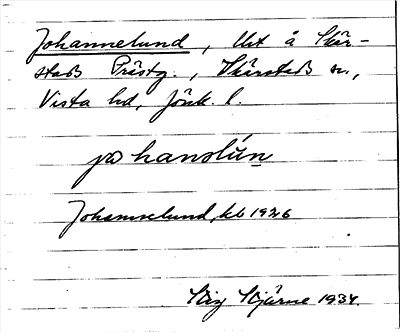 Johannelund, Ut å Skär-
stads Prästg., Skärstads sn.,
Vista hd, Jönk. l.
på hanslún
Johannelund, kb 1926
Stig Stjärne 1934.